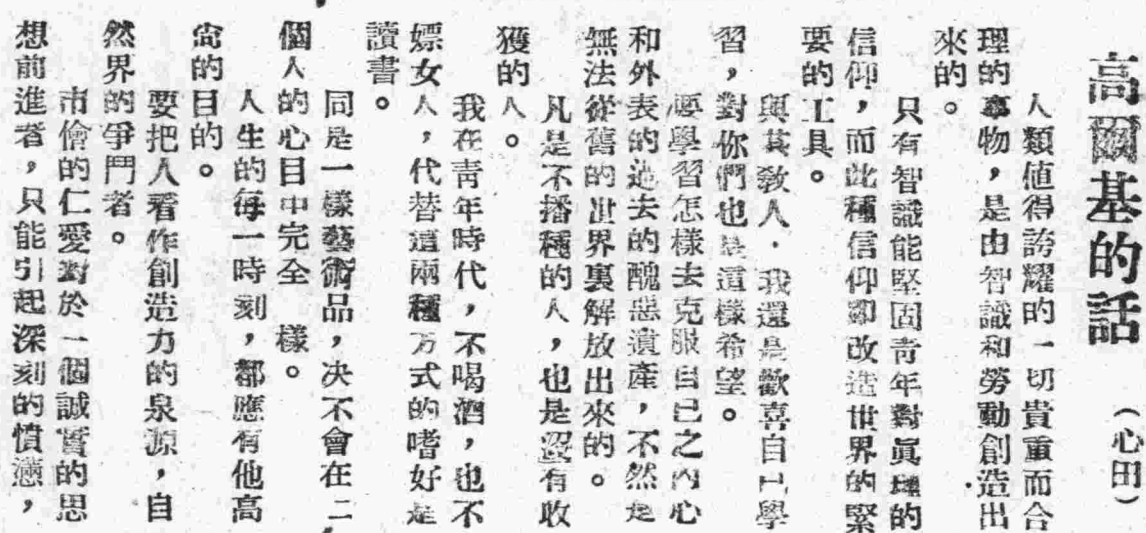 高爾基的話 (心田)
人類値得誇耀的一切貴重而合
理的事物,是由智識和勞動創造出
來的。
只有智識能堅固靑年對眞理的
信仰,而此種信仰卽改造世界的緊
要的工具。
與其敎人.我還是歡喜自己學
習,對你們也是這樣希望。
要學習怎樣去克服自己之內心
和外表的過去的醜惡遺產,不然是
無法從舊的世界裏解放出來的。
凡是不播種的人,也是沒有收
獲的人。
我在靑年時代,不喝酒,也不
嫖女人,代替這兩種方式的嗜好是
讀書。
同是一樣藝術品,决不會在二
個人的心目中完全 樣。
人生的每一時刻,都應有他高
尙的目的。
要把人看作創造力的泉源,自
然界的爭鬥者。
市儈的仁愛對於一個誠實的思
想前進者,只能引起深刻的憤懣,